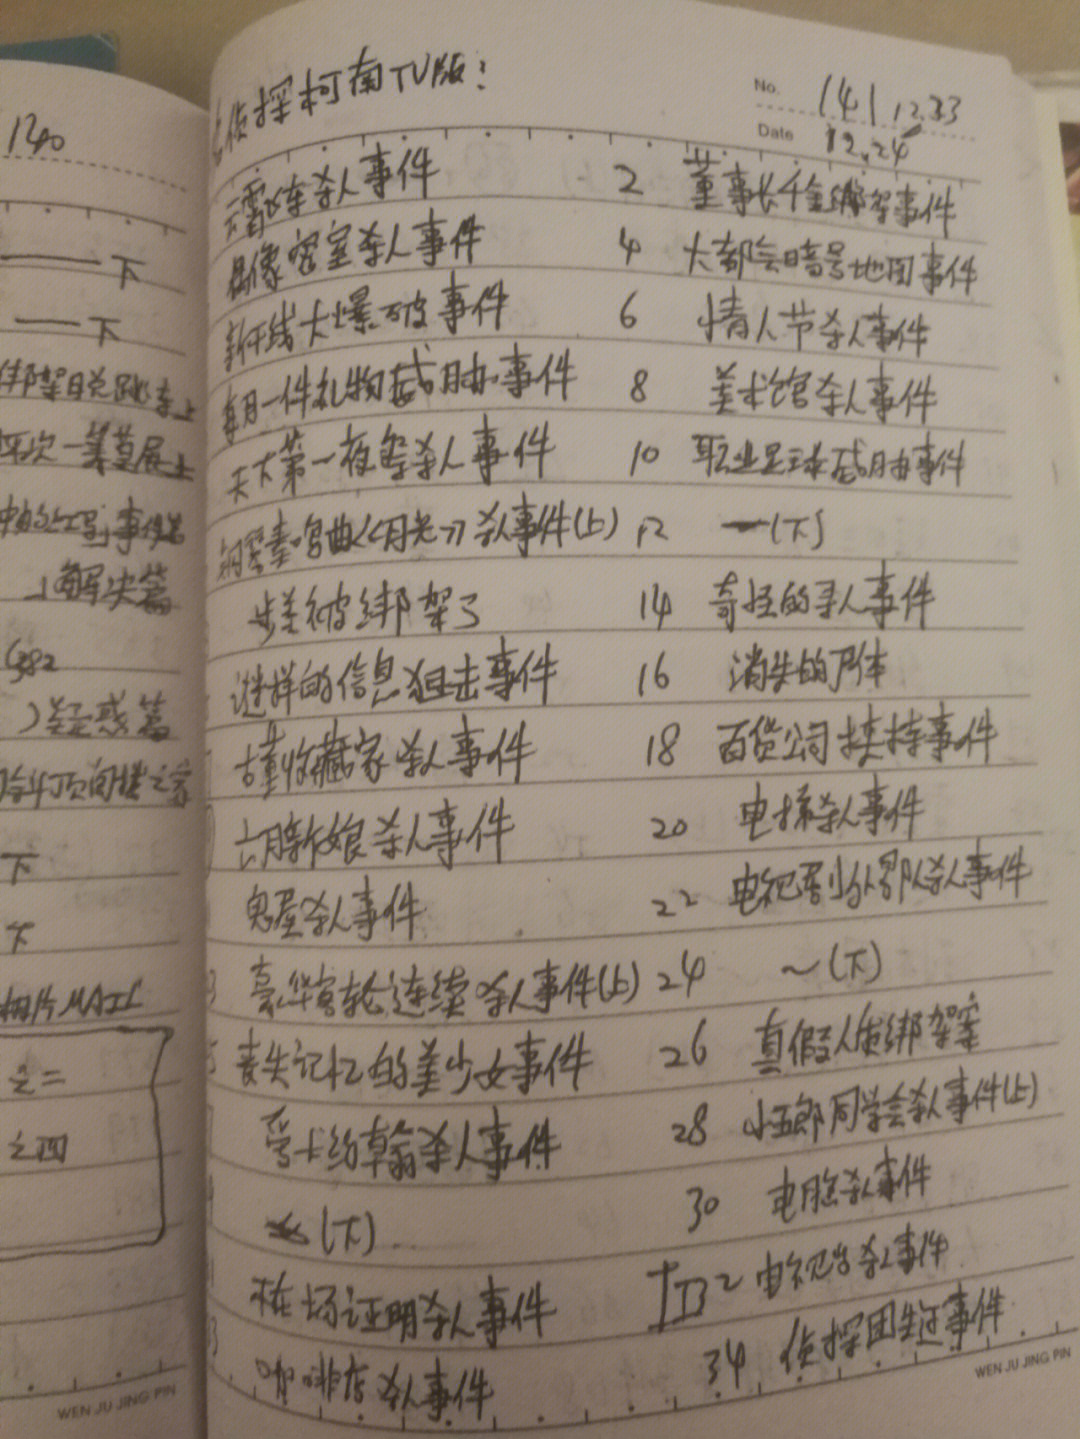 140
下
下
绑架脱逃事上
平次一筹莫展上
解决篇
疑惑篇
下
下
相片MAIL
之二
之四
WEN JU JING PIN
侦探柯南TV版:
No. 141 12.33
Date 12.24
云霄飞车杀人事件 2 董事长千金绑架事件
偶像密室杀人事件 4 大都会暗号地图事件
新干线大爆破事件 6 情人节杀人事件
每月一件礼物威胁事件 8 美术馆杀人事件
天下第一夜祭杀人事件 10 职业足球威胁事件
钢琴奏鸣曲《月光》杀人事件(上) 12 一(下)
步美被绑架了 14 奇怪的寻人事件
谜样的信息狙击事件 16 消失的尸体
古董收藏家杀人事件 18 百货公司挟持事件
六月新娘杀人事件 20 电梯杀人事件
鬼屋杀人事件 22 电视剧外景队杀人事件
豪华客轮连续杀人事件(上) 24 ~(下)
丧失记忆的美少女事件 26 真假人质绑架案
约翰杀人事件 28 小五郎同学会杀人事件(上)
(下) 30 电脑杀人事件
在场证明杀人事件 32 电视台杀人事件
咖啡店杀人事件 34 侦探团生还事件
WEN JU JING PIN